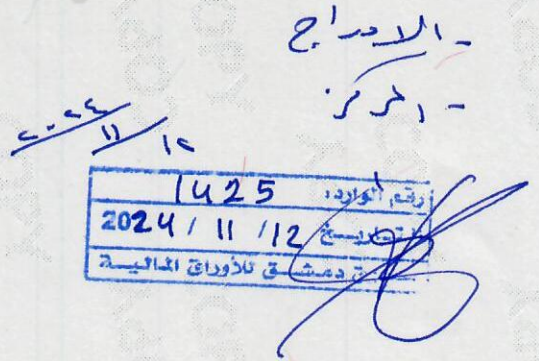 - الادراج
- المركز
٢٠٢٤/١١/١٢
رقم الوارد: 1425
التاريخ 12/ 11 / 2024
سوق دمشق للأوراق المالية